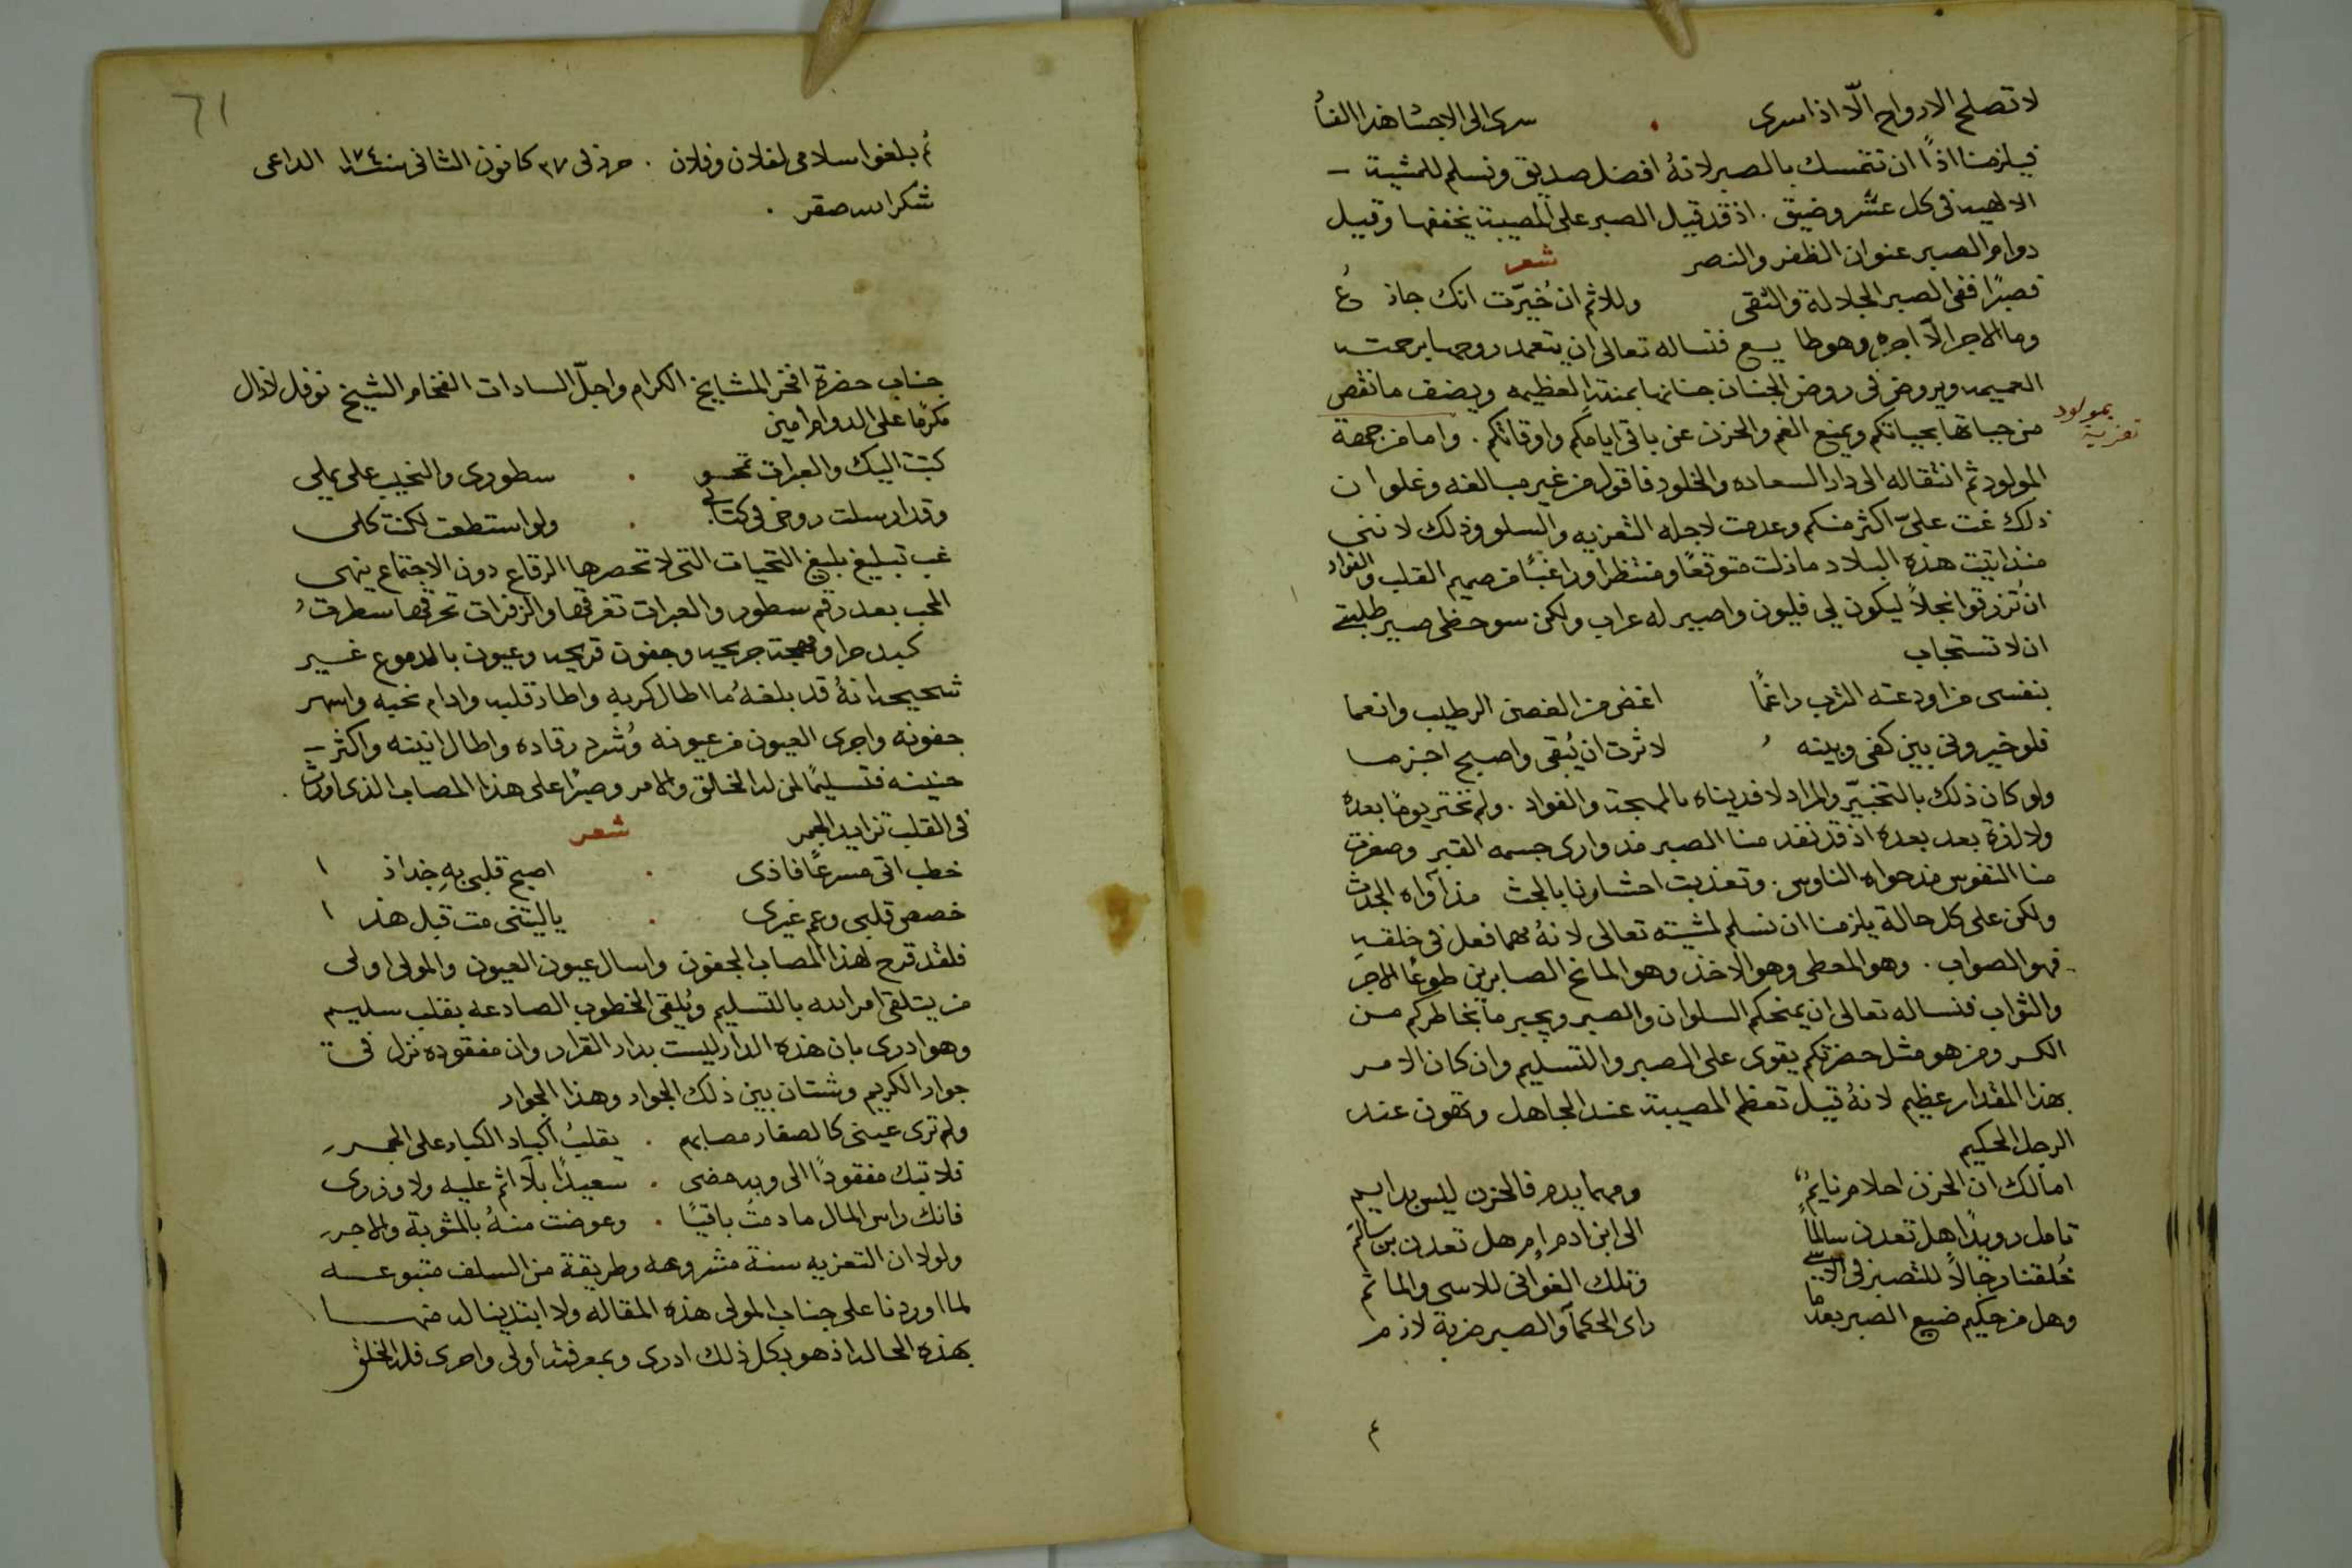 لا تصلح الارواح الّا اذا سرى . سرى الى الاجسا هذا الفنا
فيلزمنا اذًا ان نتمسك بالصبر لانهُ افضل صديق ونسلم للمشية
الالهيه في كل عسر وضيق . اذ قد قيل الصبر على المصيبة يخففها وقيل
دوام الصبر عنوان الظفر والنصر شعر
فصبرًا ففي الصبر الجلالة والتقى وللاثم ان خُيّرت انك جاذ عُ
وما الاجر الّا اجره وهو طا يع فنساله تعالى ان يتغمد روحها برحمته
العميمه ويروض في روض الجنان جنانها بمنته العظيمه ويضف ما نقص
تعزية بمولود
من حياتها بحياتكم ويمنع الغم والحزن عن باقي ايامكم واوقاتكم . واما من جهة
المولود ثم انتقاله الى دار السعاده والخلود فاقول من غير مبالغه وغلو ان
ذلك غمت عليّ اكثر منكم وعدمت لاجله التعزيه والسلو وذلك لانني
منذ اتيت هذه البلاد ما زلت متوقعًا ومنتظرا وراغبًا من صميم القلب والفواد
ان تُرزقوا نجلاً ليكون لي فليون واصير له عراب ولكن سو حظي صير طلبتي
ان لا تستجاب
بنفسي من اودعته الترب راغمًا اغض من الغصن الرطيب وانعما
فلو خيروني بين كفي وبينه لاثرت ان يُبقى واصبح اجزما
ولو كان ذلك بالتخيّر والمراد لافديناه بالمهجة والفواد . ولم نختر يومًا بعده
ولا لذة بعد بعده اذ قد نفد منا الصبر مذ وارى جسمه القبر وصفرت
منا النفوس مذ حواه الناوس . وتعذبت احشاونا بالجث مذ آواه الجدث
ولكن على كل حالة يلزمنا ان نسلم لمشيته تعالى لانهُ مهما فعل في خلقه
فهو الصواب . وهو المعطي وهو الاخذ وهو المانح الصابرين طوعًا الاجر
والثواب فنساله تعالى ان يمنحكم السلوان والصبر ويجبر ما بخاطركم من
الكسر ومن هو مثل حضرتكم يقوى على الصبر والتسليم وان كان الامر
بهذا المقدار عظيم لانهُ قيل تعظم المصيبة عند الجاهل وتهون عند
الرجل الحكيم
اما لك ان الحزن احلام نايمٌ ومهما يدم فالحزن ليس بدايم
تامل رويدًا هل تعدن سالمًا الى ابن ادم ام هل تعدن بن سالم
خُلقنا رجالاً للتصبر في الاسى وتلك الغواني للاسى والماثم
وهل من حكيم ضيع الصبر بعدما راى الحكمآ والصبر ضربة لازم
٤
٦١
ثم بلغوا سلامي لفلان وفلان . حرر في ٢٧ كانون الثاني سنة ١٧٤ الداعي
شكرالله صقر .
جناب حضرة افخر المشايخ الكرام واجلّ السادات الفخام الشيخ نوفل لازال
مكرمًا على الدوام امين
كتبت اليك والعبرات تمحو . سطوري والنحيب علي يملي
وقد ارسلت روحي في كتابي . ولو استطعت لكنت كلي
غب تبليغ بليغ التحيات التي لا تحصرها الرقاع دون الاجتماع ينهي
المحب بعد رقم سطور والعبرات تغرقها والزفرات تحرقها سطرتُ
كبد حرا ومهجة جريحه وجفون قريحه وعيون بالدموع غير
شحيحه انهُ قد بلغهُ ما اطال كربه واطار قلبه وادام نحبه واسهر
جفونه واجرى العيون من عيونه وشرد رقاده واطال انينه واكثر
حنينه فتسليمًا لمن له الخالق والامر وصبرًا على هذا المصاب الذي اورث
في القلب تزايد الجمر شعر
خطب اتى مسرعًا فاذى . اصبح قلبي بهِ جذاذ ا
خصص قلبي وعم غيري . يا ليتني مت قبل هذ ا
فلقد قرح لهذا المصاب الجفون واسال عيون العيون والمولى اولى
من يتلقى امر الله بالتسليم ويُلقي الخطوب الصادعه بقلب سليم
وهو ادرى بان هذه الدار ليست بدار القرار وان مفقوده نزل في
جوار الكريم وشتان بين ذلك الجوار وهذا الجوار
ولم ترى عيني كالصغار مصابهم . يقلبُ اكباد الكبار على الجمر
فلا تبك مفقودًا الى ربه مضى . سعيدًا بلا اثم عليه ولا وزرى
فانك راس المال ما دمت باقيًا . وعوضت منهُ بالمثوبة والاجر
ولولا ان التعزيه سنة مشروعه وطريقة من السلف متبوعه
لما اوردنا على جناب المولى هذه المقاله ولا ابتدينا له منها
بهذه الحاله اذ هو بكل ذلك ادرى وبمعرفته اولى واحرى فله الخلق